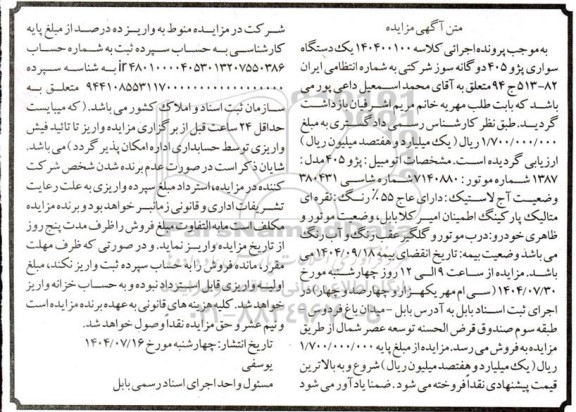 متن آگهی مزایده
به موجب پرونده اجرائی کلاسه ۱۴۰۴۰۰۱۰۰ یک دستگاه
سواری پژو ۴۰۵ دوگانه سوز شرکتی به شماره انتظامی ایران
۸۲-۵۱۳ ج ۹۴ متعلق به آقای محمد اسمعیل داعی پور می
باشد که بابت طلب مهریه خانم مریم اشرفیان بازداشت
گردید. طبق نظر کارشناس رسمی دادگستری به مبلغ
۱/۷۰۰/۰۰۰/۰۰۰ ریال (یک میلیارد و هفتصد میلیون ریال)
ارزیابی گردیده است. مشخصات اتومبیل: پژو ۴۰۵ مدل:
۱۳۸۷ شماره موتور: ۷۱۴۰۸۸۰ شماره شاسی ۳۸۰۴۳۱
وضعیت آج لاستیک: دارای عاج ۵۵٪ رنگ: نقره ای
متالیک پارکینگ اطمینان امیرکلا بابل، وضعیت موتور و
ظاهری خودرو: درب موتور و گلگیر عقب رنگ و آب رنگ
می باشد وضعیت بیمه: تاریخ انقضای بیمه ۱۴۰۴/۰۹/۱۸ می
باشد. مزایده از ساعت ۹ الی ۱۲ روز چهارشنبه مورخ
۱۴۰۴/۰۷/۳۰ (سی ام مهر یکهزار و چهارصد و چهار) در
اجرای ثبت اسناد بابل به آدرس بابل - میدان باغ فردوس
طبقه سوم صندوق قرض الحسنه توسعه عصر شمال از طریق
مزایده به فروش می رسد. مزایده از مبلغ پایه ۱/۷۰۰/۰۰۰/۰۰۰
ریال (یک میلیارد و هفتصد میلیون ریال) شروع و به بالاترین
قیمت پیشنهادی نقداً فروخته می شود. ضمنا یادآور می شود
شرکت در مزایده منوط به واریز ده درصد از مبلغ پایه
کارشناسی به حساب سپرده ثبت به شماره حساب
ir۴۸۰۱۰۰۰۰۴۰۵۳۰۱۳۲۰۷۵۵۰۳۸۶ به شناسه سپرده
متعلق به
سازمان ثبت اسناد و املاک کشور می باشد. (که میبایست
حداقل ۲۴ ساعت قبل از برگزاری مزایده واریز تا تائید فیش
واریزی توسط حسابداری اداره امکان پذیر گردد) می باشد.
شایان ذکر است در صورت عدم برنده شدن شخص شرکت
کننده در مزایده، استرداد مبلغ سپرده واریزی به علت رعایت
تشریفات اداری و قانونی زمانبر خواهد بود و برنده مزایده
مکلف است مابه التفاوت مبلغ فروش را ظرف مدت پنج روز
از تاریخ مزایده واریز نماید. و در صورتی که ظرف مهلت
مقرر، مانده فروش را به حساب سپرده ثبت واریز نکند، مبلغ
اولیه واریزی قابل استرداد نبوده و به حساب خزانه واریز
خواهد شد. کلیه هزینه های قانونی به عهده برنده مزایده است
و نیم عشر و حق مزایده نقدا وصول خواهد شد.
تاریخ انتشار: چهارشنبه مورخ ۱۴۰۴/۰۷/۱۶
یوسفی
مسئول واحد اجرای اسناد رسمی بابل